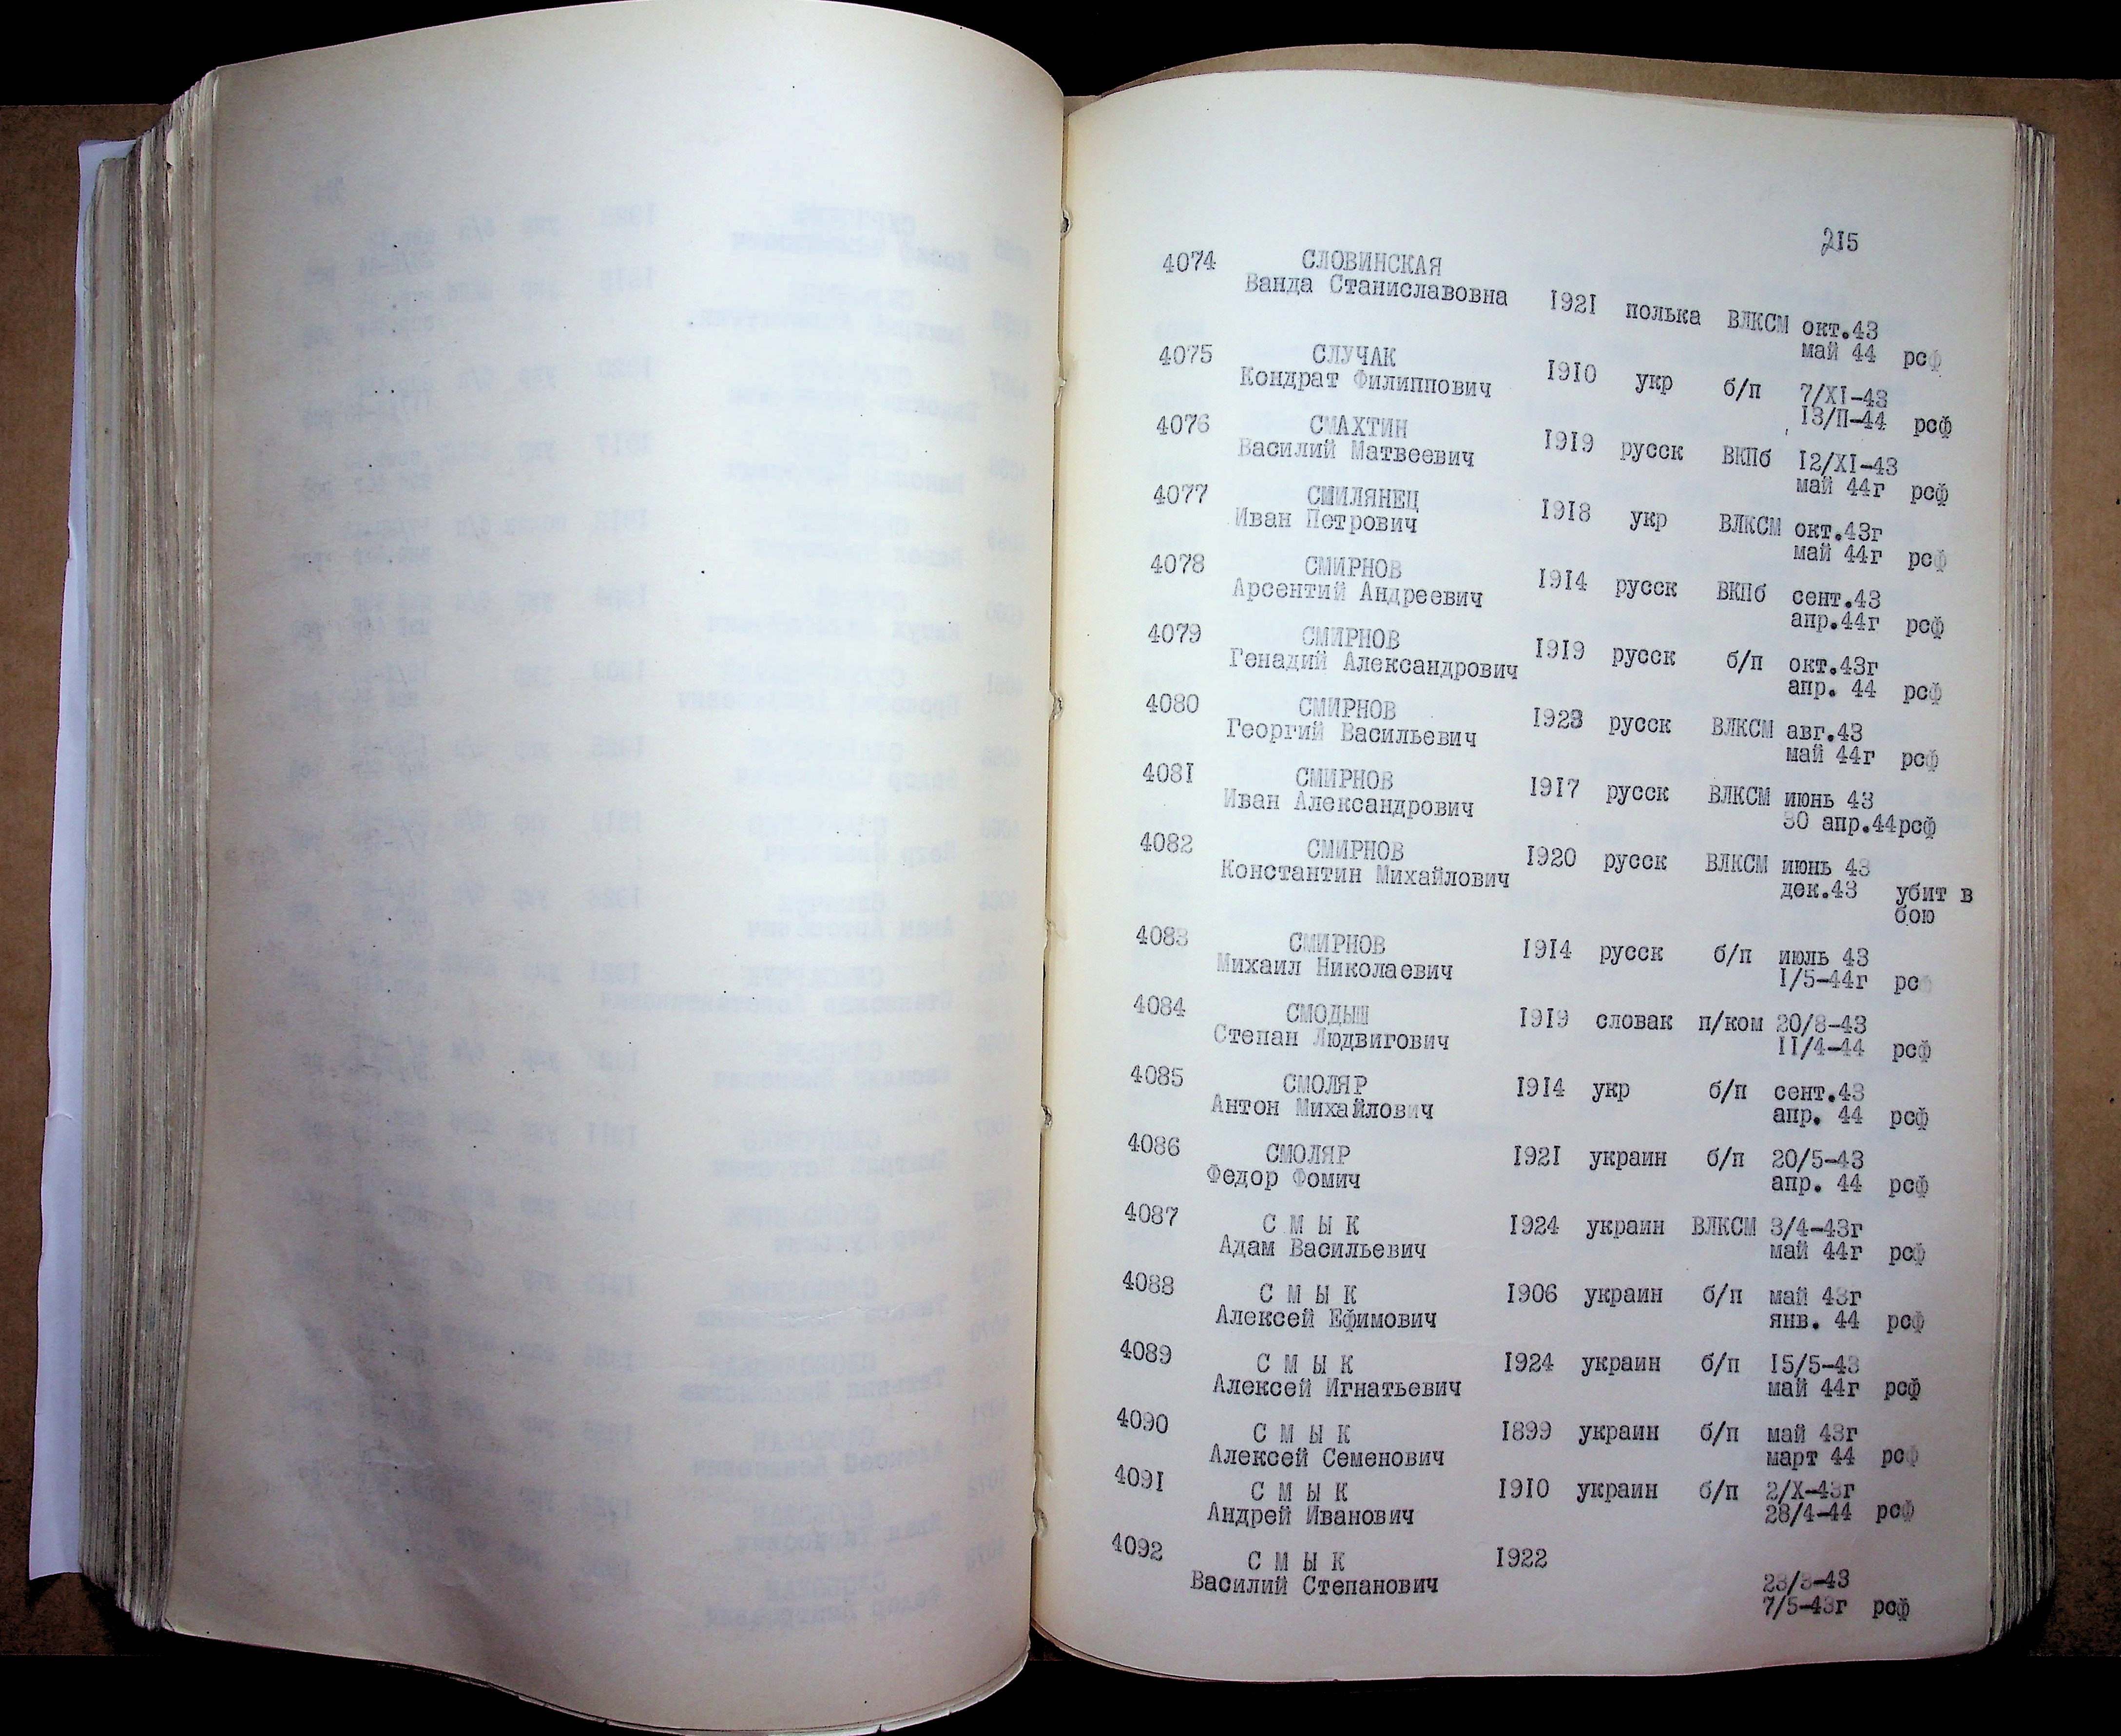 215
4074 СЛОВИНСКАЯ
Ванда Станиславовна 1921 полька ВЛКСМ окт.43
май 44 рсф
4075 СЛУЧАК
Кондрат Филиппович 1910 укр б/п 7/XI-43
13/П-44 рсф
4076 СМАХТИН
Василий Матвеевич 1919 русск ВКПб 12/XI-43
май 44г рсф
4077 СМИЛЯНЕЦ
Иван Петрович 1918 укр ВЛКСМ окт.43г
май 44г рсф
4078 СМИРНОВ
Арсентий Андреевич 1914 русск ВКПб сент.43
апр.44г рсф
4079 СМИРНОВ
Генадий Александрович 1919 русск б/п окт.43г
апр. 44 рсф
4080 СМИРНОВ
Георгий Васильевич 1923 русск ВЛКСМ авг.43
май 44г рсф
4081 СМИРНОВ
Иван Александрович 1917 русск ВЛКСМ июнь 43
30 апр.44рсф
4082 СМИРНОВ
Константин Михайлович 1920 русск ВЛКСМ июнь 43
дек.43 убит в
бою
4083 СМИРНОВ
Михаил Николаевич 1914 русск б/п июль 43
1/5-44г рс
4084 СМОДЫШ
Степан Людвигович 1919 словак п/ком 20/8-43
11/4-44 рсф
4085 СМОЛЯР
Антон Михайлович 1914 укр б/п сент.43
апр. 44 рсф
4086 СМОЛЯР
Федор Фомич 1921 украин б/п 20/5-43
апр. 44 рсф
4087 С М Ы К
Адам Васильевич 1924 украин ВЛКСМ 3/4-43г
май 44г рсф
4088 С М Ы К
Алексей Ефимович 1906 украин б/п май 43г
янв. 44 рсф
4089 С М Ы К
Алексей Игнатьевич 1924 украин б/п 15/5-43
май 44г рсф
4090 С М Ы К
Алексей Семенович 1899 украин б/п май 43г
март 44 рсф
4091 С М Ы К
Андрей Иванович 1910 украин б/п 2/X-43г
28/4-44 рсф
4092 С М Ы К 1922
Василий Степанович 23/3-43
7/5-43г рсф